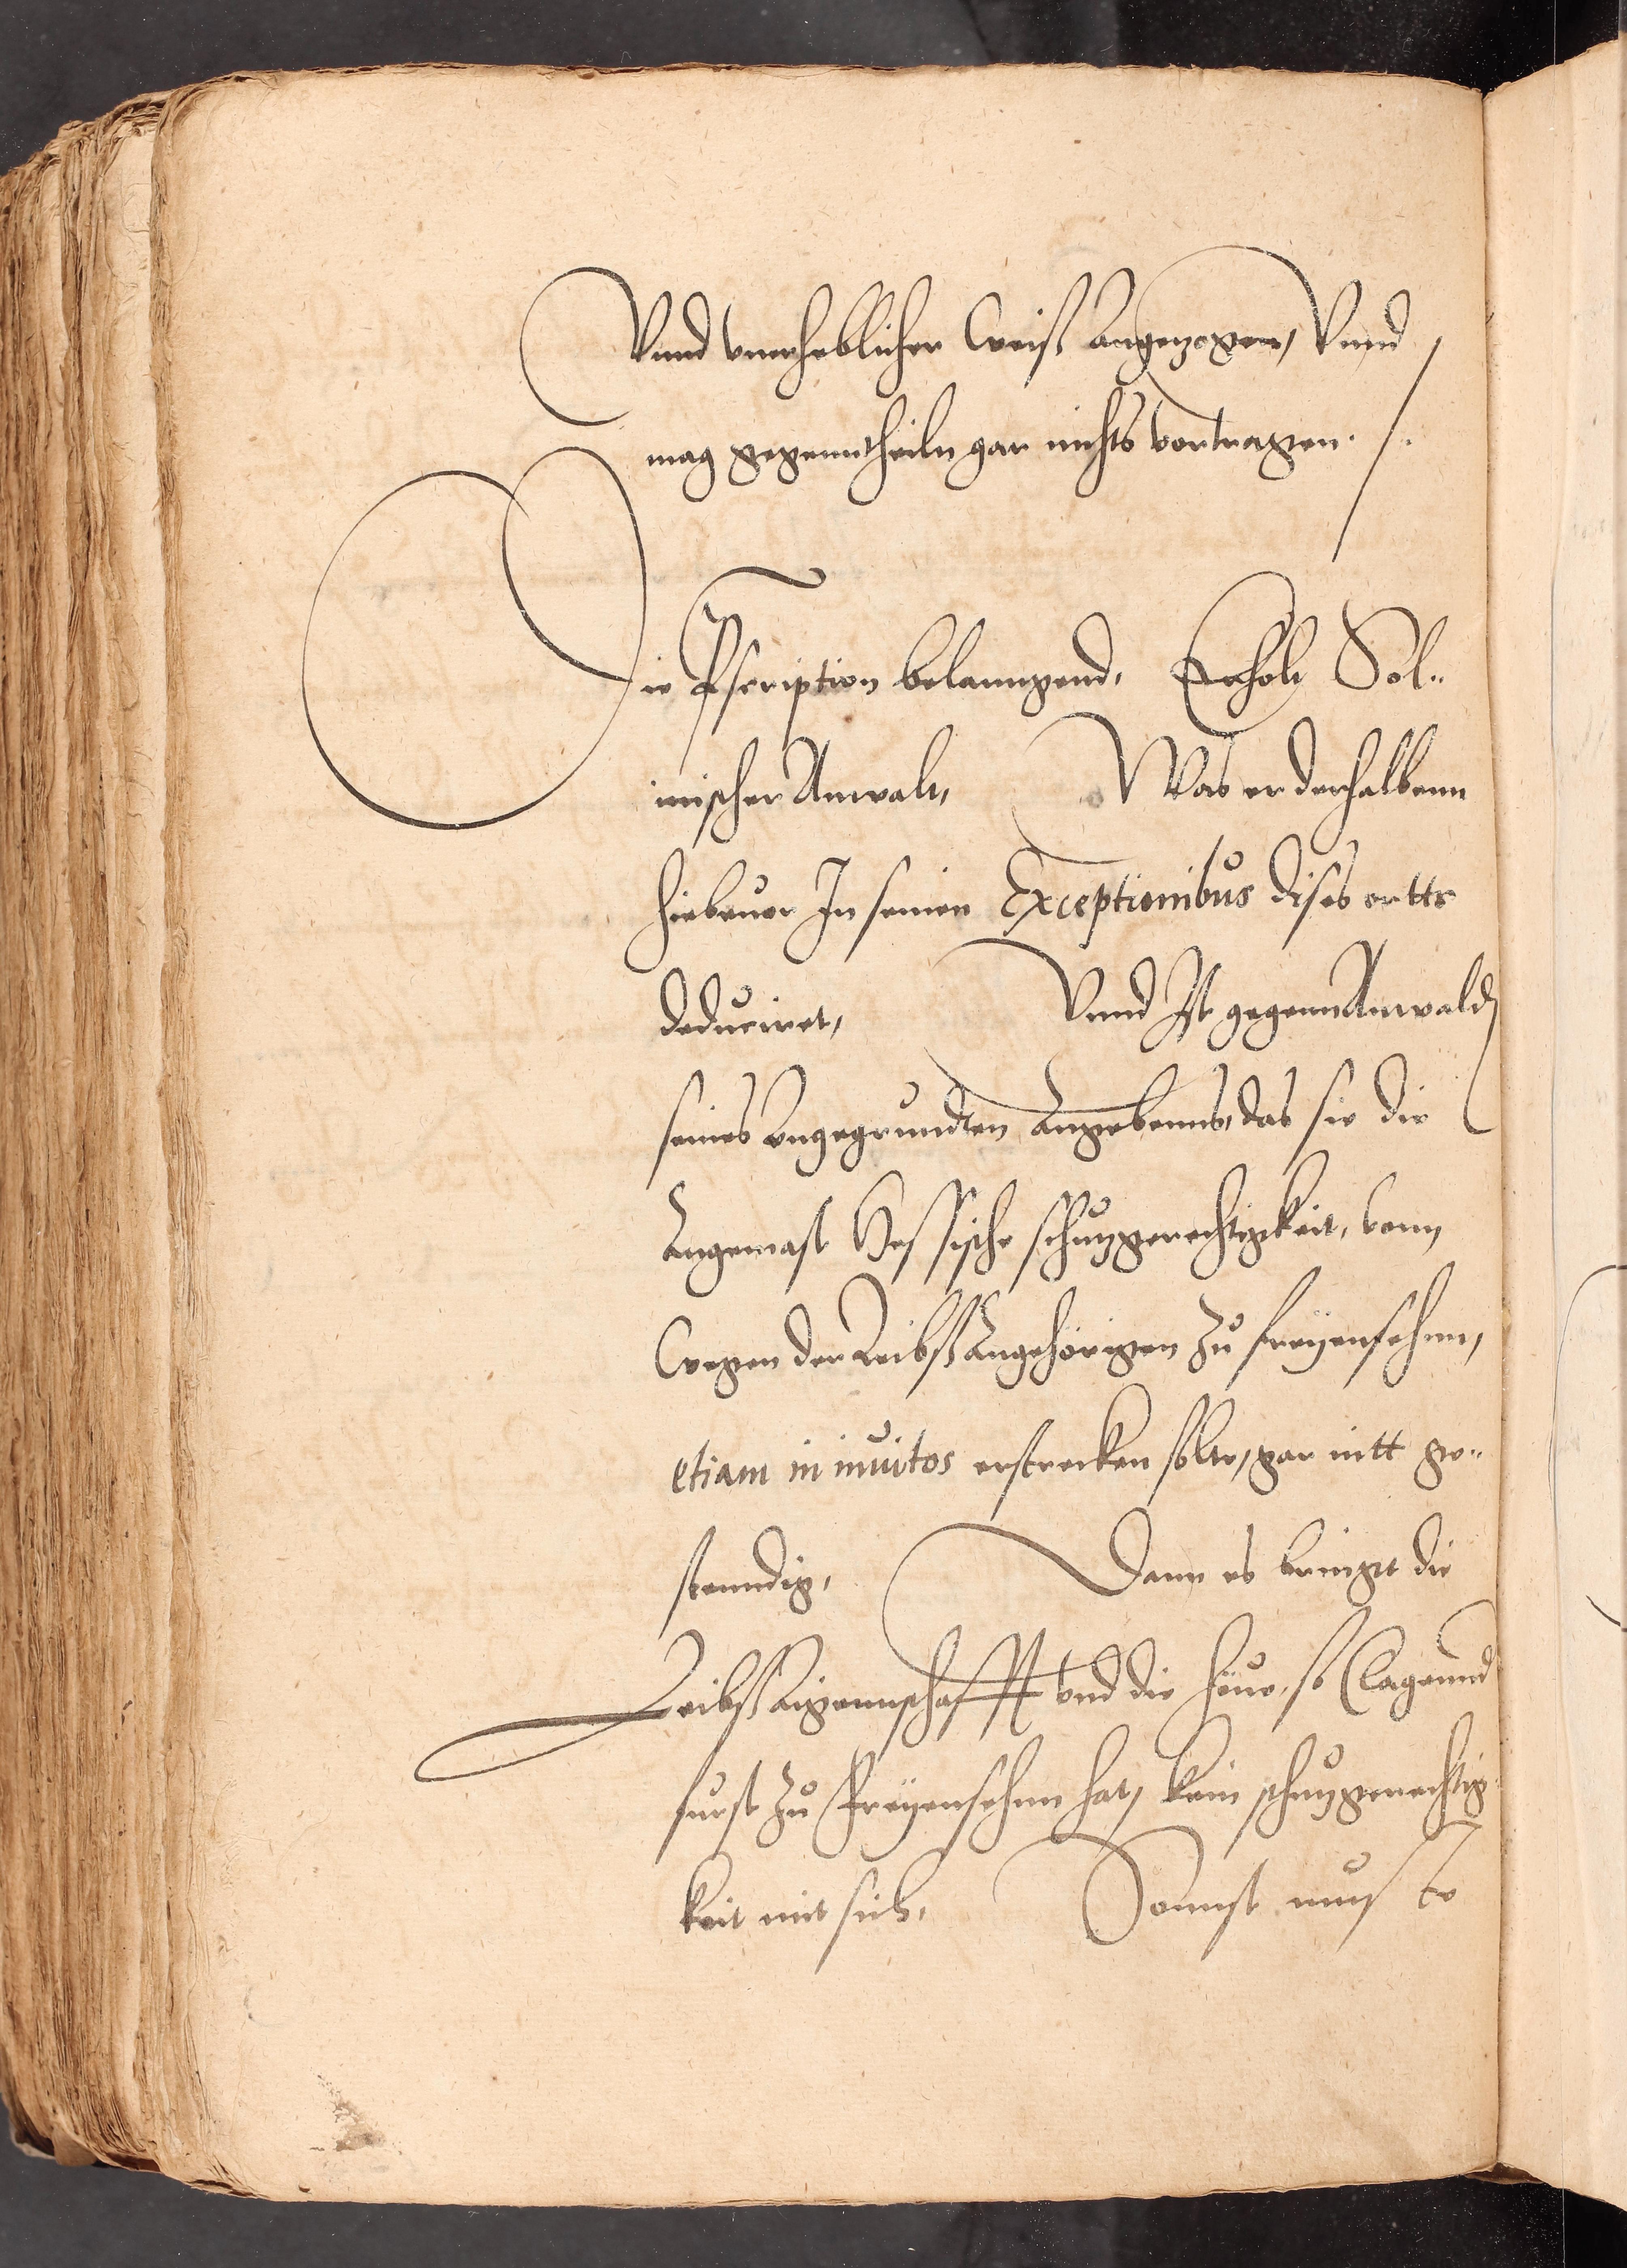 Vnnd vnerheblicher weiß angezogen, Vnnd
mag gegenntheiln gar nichts vortragen.
Die Pscription belanngend, Erholt Sol-
mischer Anwalt, Was er derhalbenn
hiebeuor In seinen Exceptionibus dises ortts
deduciret, Vnnd Ist gegenn Anwaldt
seines vngegrundten angebenns, das sie die
angemast Hessische schutzgerechtigkeit, vonn
wegen der Leibßangehörigen zu freyensehenn,
etiam in inuitos erstrecken solte, gar nitt ge-
stenndig, Dann es bringet die
Leibßaigennschafft vnd die so Clagennd
furst zu freyensehenn hatt kein schutzgerechtig
keit mit sich, Sonnst must